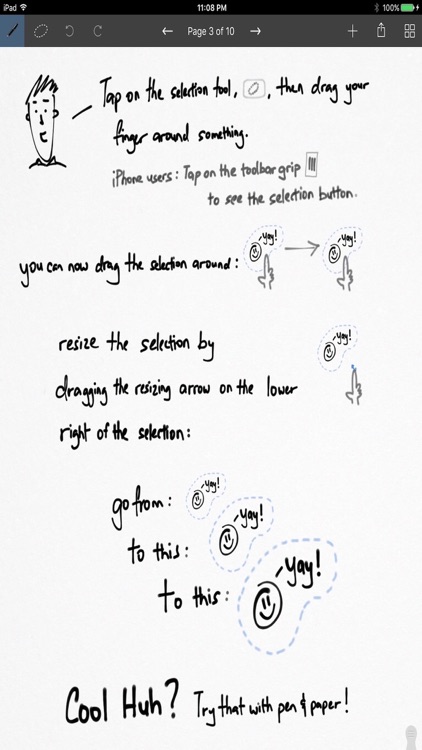 iPad 11:08 PM 100%
Page 3 of 10
Tap on the selection tool, , then drag your
finger around something.
iPhone users: Tap on the toolbar grip
to see the selection button.
yay! yay!
you can now drag the selection around:
yay!
resize the selection by
dragging the resizing arrow on the lower
right of the selection:
go from: yay!
to this: yay!
to this: yay!
Cool Huh? Try that with pen & paper!